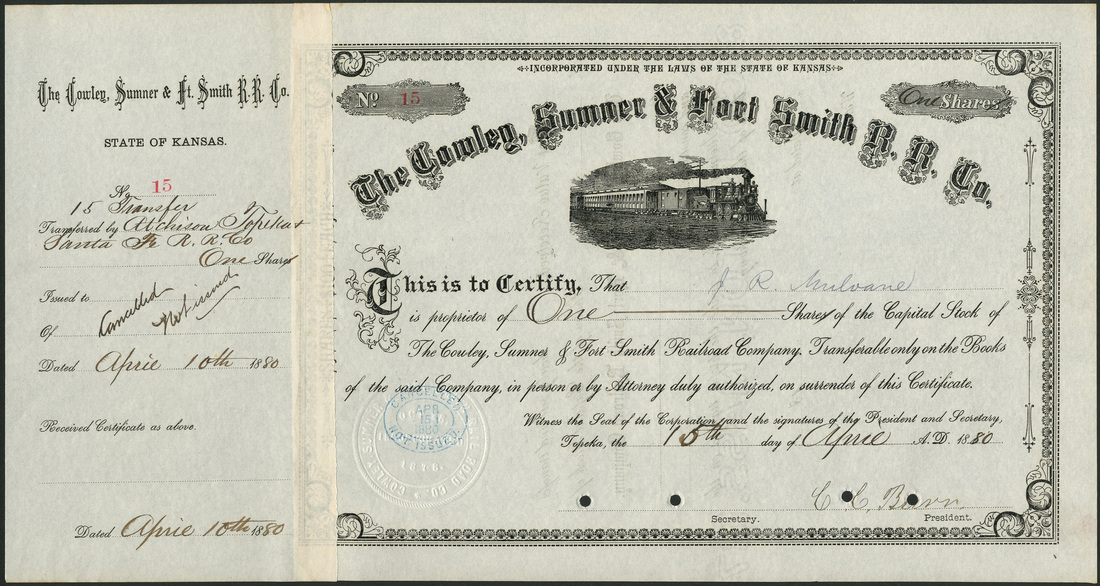 The Cowley, Sumner & Ft. Smith R.R. Co.
STATE OF KANSAS.
No. 15
15 Transfer
Transferred by Atchison Topeka &
Santa Fe R. R. Co
One Shares
Issued to
Cancelled
Not issued
Of
Dated April 10th 1880
Received Certificate as above.
Dated April 10th 1880
INCORPORATED UNDER THE LAWS OF THE STATE OF KANSAS
No 15
One Shares
The Cowley, Sumner & Fort Smith R. R. Co.
This is to Certify, That J. R. Mulvane
is proprietor of One Shares of the Capital Stock of
The Cowley, Sumner & Fort Smith Railroad Company. Transferable only on the Books
of the said Company, in person or by Attorney duly authorized, on surrender of this Certificate.
Witness the Seal of the Corporation, and the signatures of the President and Secretary,
Topeka, the 15th day of April A.D. 1880
CANCELLED
APR
15
1880
NOT ISSUED
1878
ROAD CO. COWLEY, SUMNER
C. C. Burn
Secretary.
President.